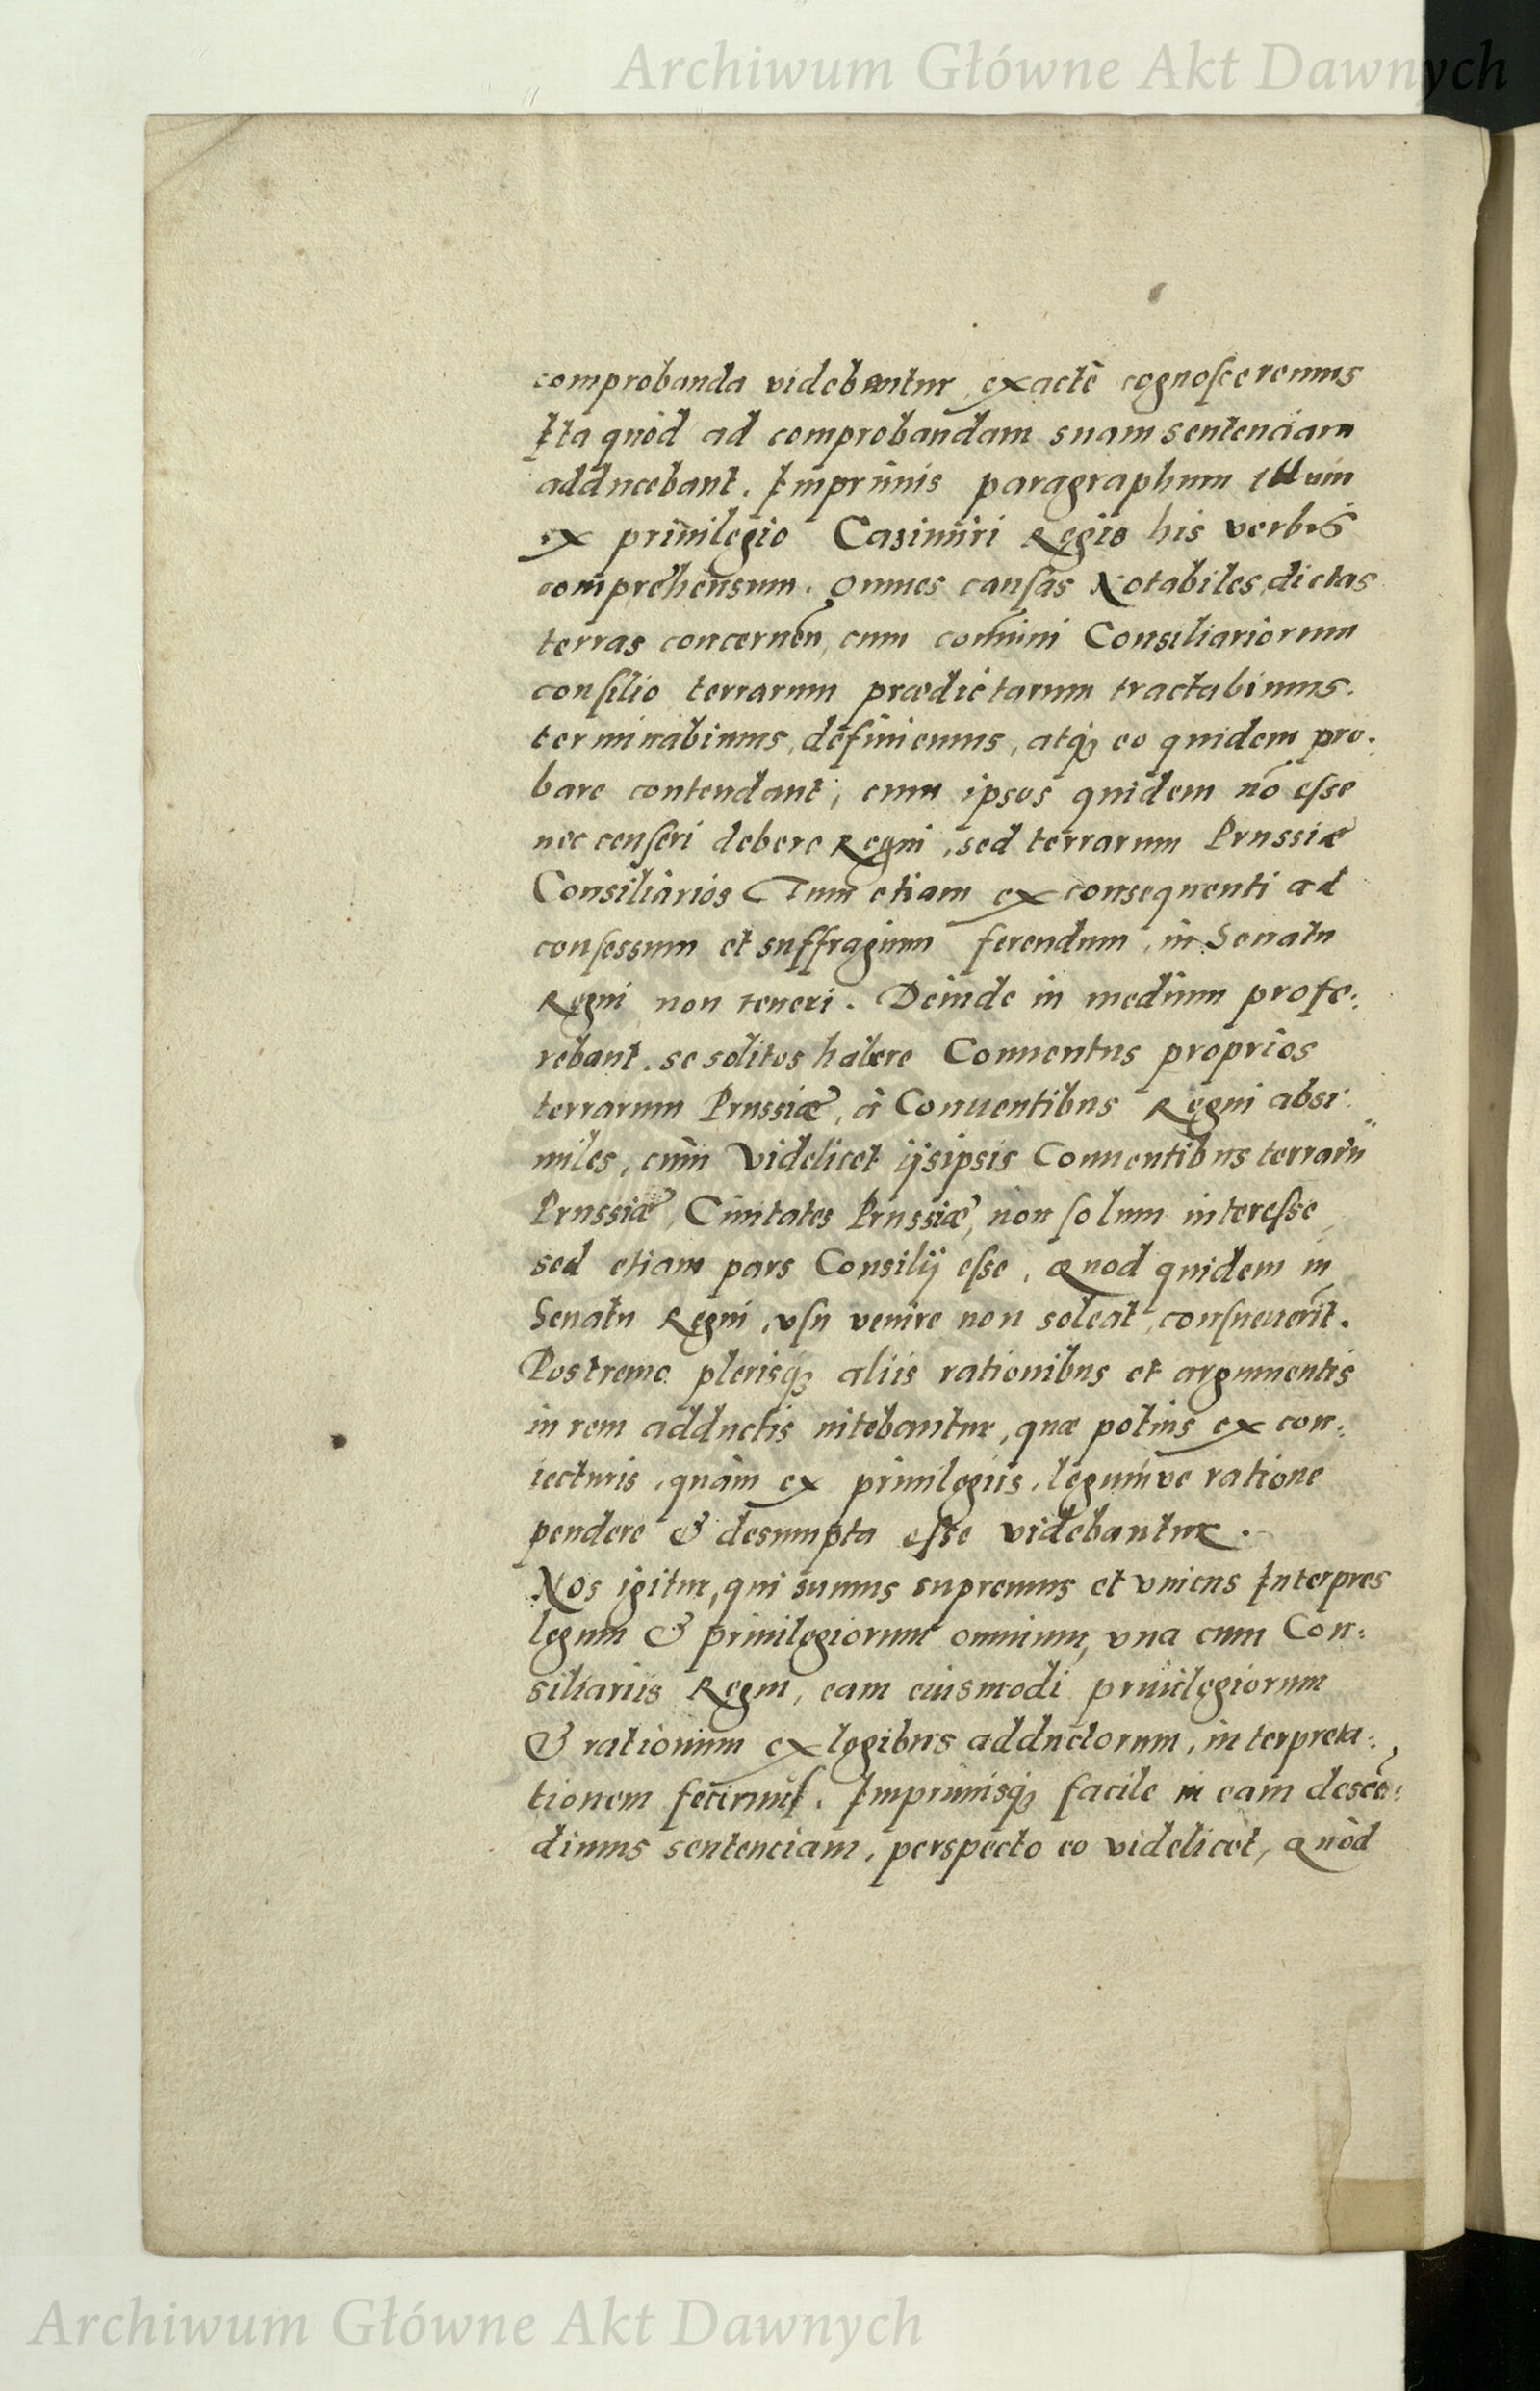 Archiwum Główne Akt Dawnych
comprobanda videbantur, exactè cognosceremus
Ita quòd ad comprobandam suam sentenciam
adducebant. Imprimis paragraphum illum
ex priuilegio Casimiri Regis his verbis
comprehensum. Omnes causas Notabiles, dictas
terras concernen, cum com̃uni Consiliariorum
consilio terrarum prædictarum tractabimus.
terminabimus, definiemus, atq₃ eo quidem pro:
bare contendant, cum ipsos quidem nō esse
nec censeri debere Regni, sed terrarum Prussiæ
Consiliarios Tum etiam ex consequenti ad
consessum et suffragium ferendum, in Senatu
Regni non teneri. Deinde in medium profe:
rebant. se solitos habere Conuentus proprios
terrarum Prussiæ, à Conuentibus Regni absi:
miles, cùm videlicet ijsipsis Conuentibus terrarū
Prussiæ, Ciuitates Prussiæ, non solum interesse
sed etiam pars Consilij esse, Quod quidem in
Senatu Regni, vsu venire non soleat, consueuerit.
Postremo plerisq₃ aliis rationibus et argumentis
in rem adductis nitebantur, quæ potius ex con:
iecturis, quàm ex priuilegiis, legumve ratione
pendere & desumpta esse videbantur.
Nos igitur, qui sumus supremus et vnicus Interpres
legum & priuilegiorum omnium, vna cum Con:
siliariis Regni, eam eiusmodi priuilegiorum
& rationum ex legibus adductorum, interpreta:
tionem fecimus. Imprimisq₃ facile in eam descē:
dimus sentenciam, perspecto eo videlicet, Quòd
Archiwum Główne Akt Dawnych